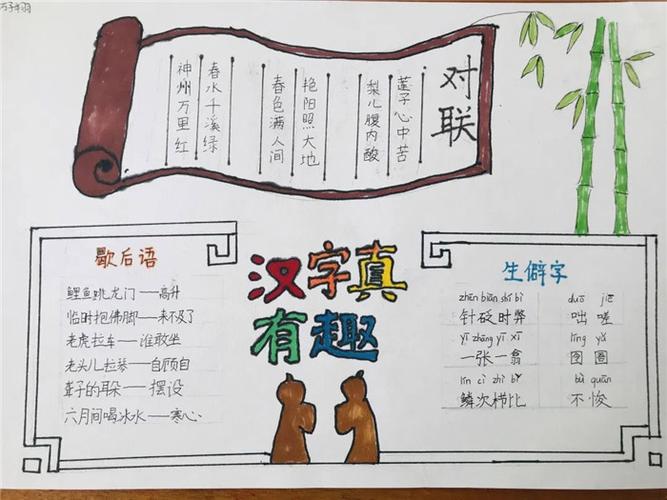 对联
莲子心中苦
梨儿腹内酸
艳阳照大地
春色满人间
春水千溪绿
神州万里红
汉字真
有趣
歇后语
鲤鱼跳龙门——高升
临时抱佛脚——来不及了
老虎拉车——谁敢坐
老头儿拉琴——自顾自
聋子的耳朵——摆设
六月间喝冰水——寒心
生僻字
zhēn biān shí bì duō jiē
针砭时弊 咄嗟
yì zhāng yì xī líng yǔ
一张一翕 囹圄
lín cì zhì bǐ bù quān
鳞次栉比 不悛